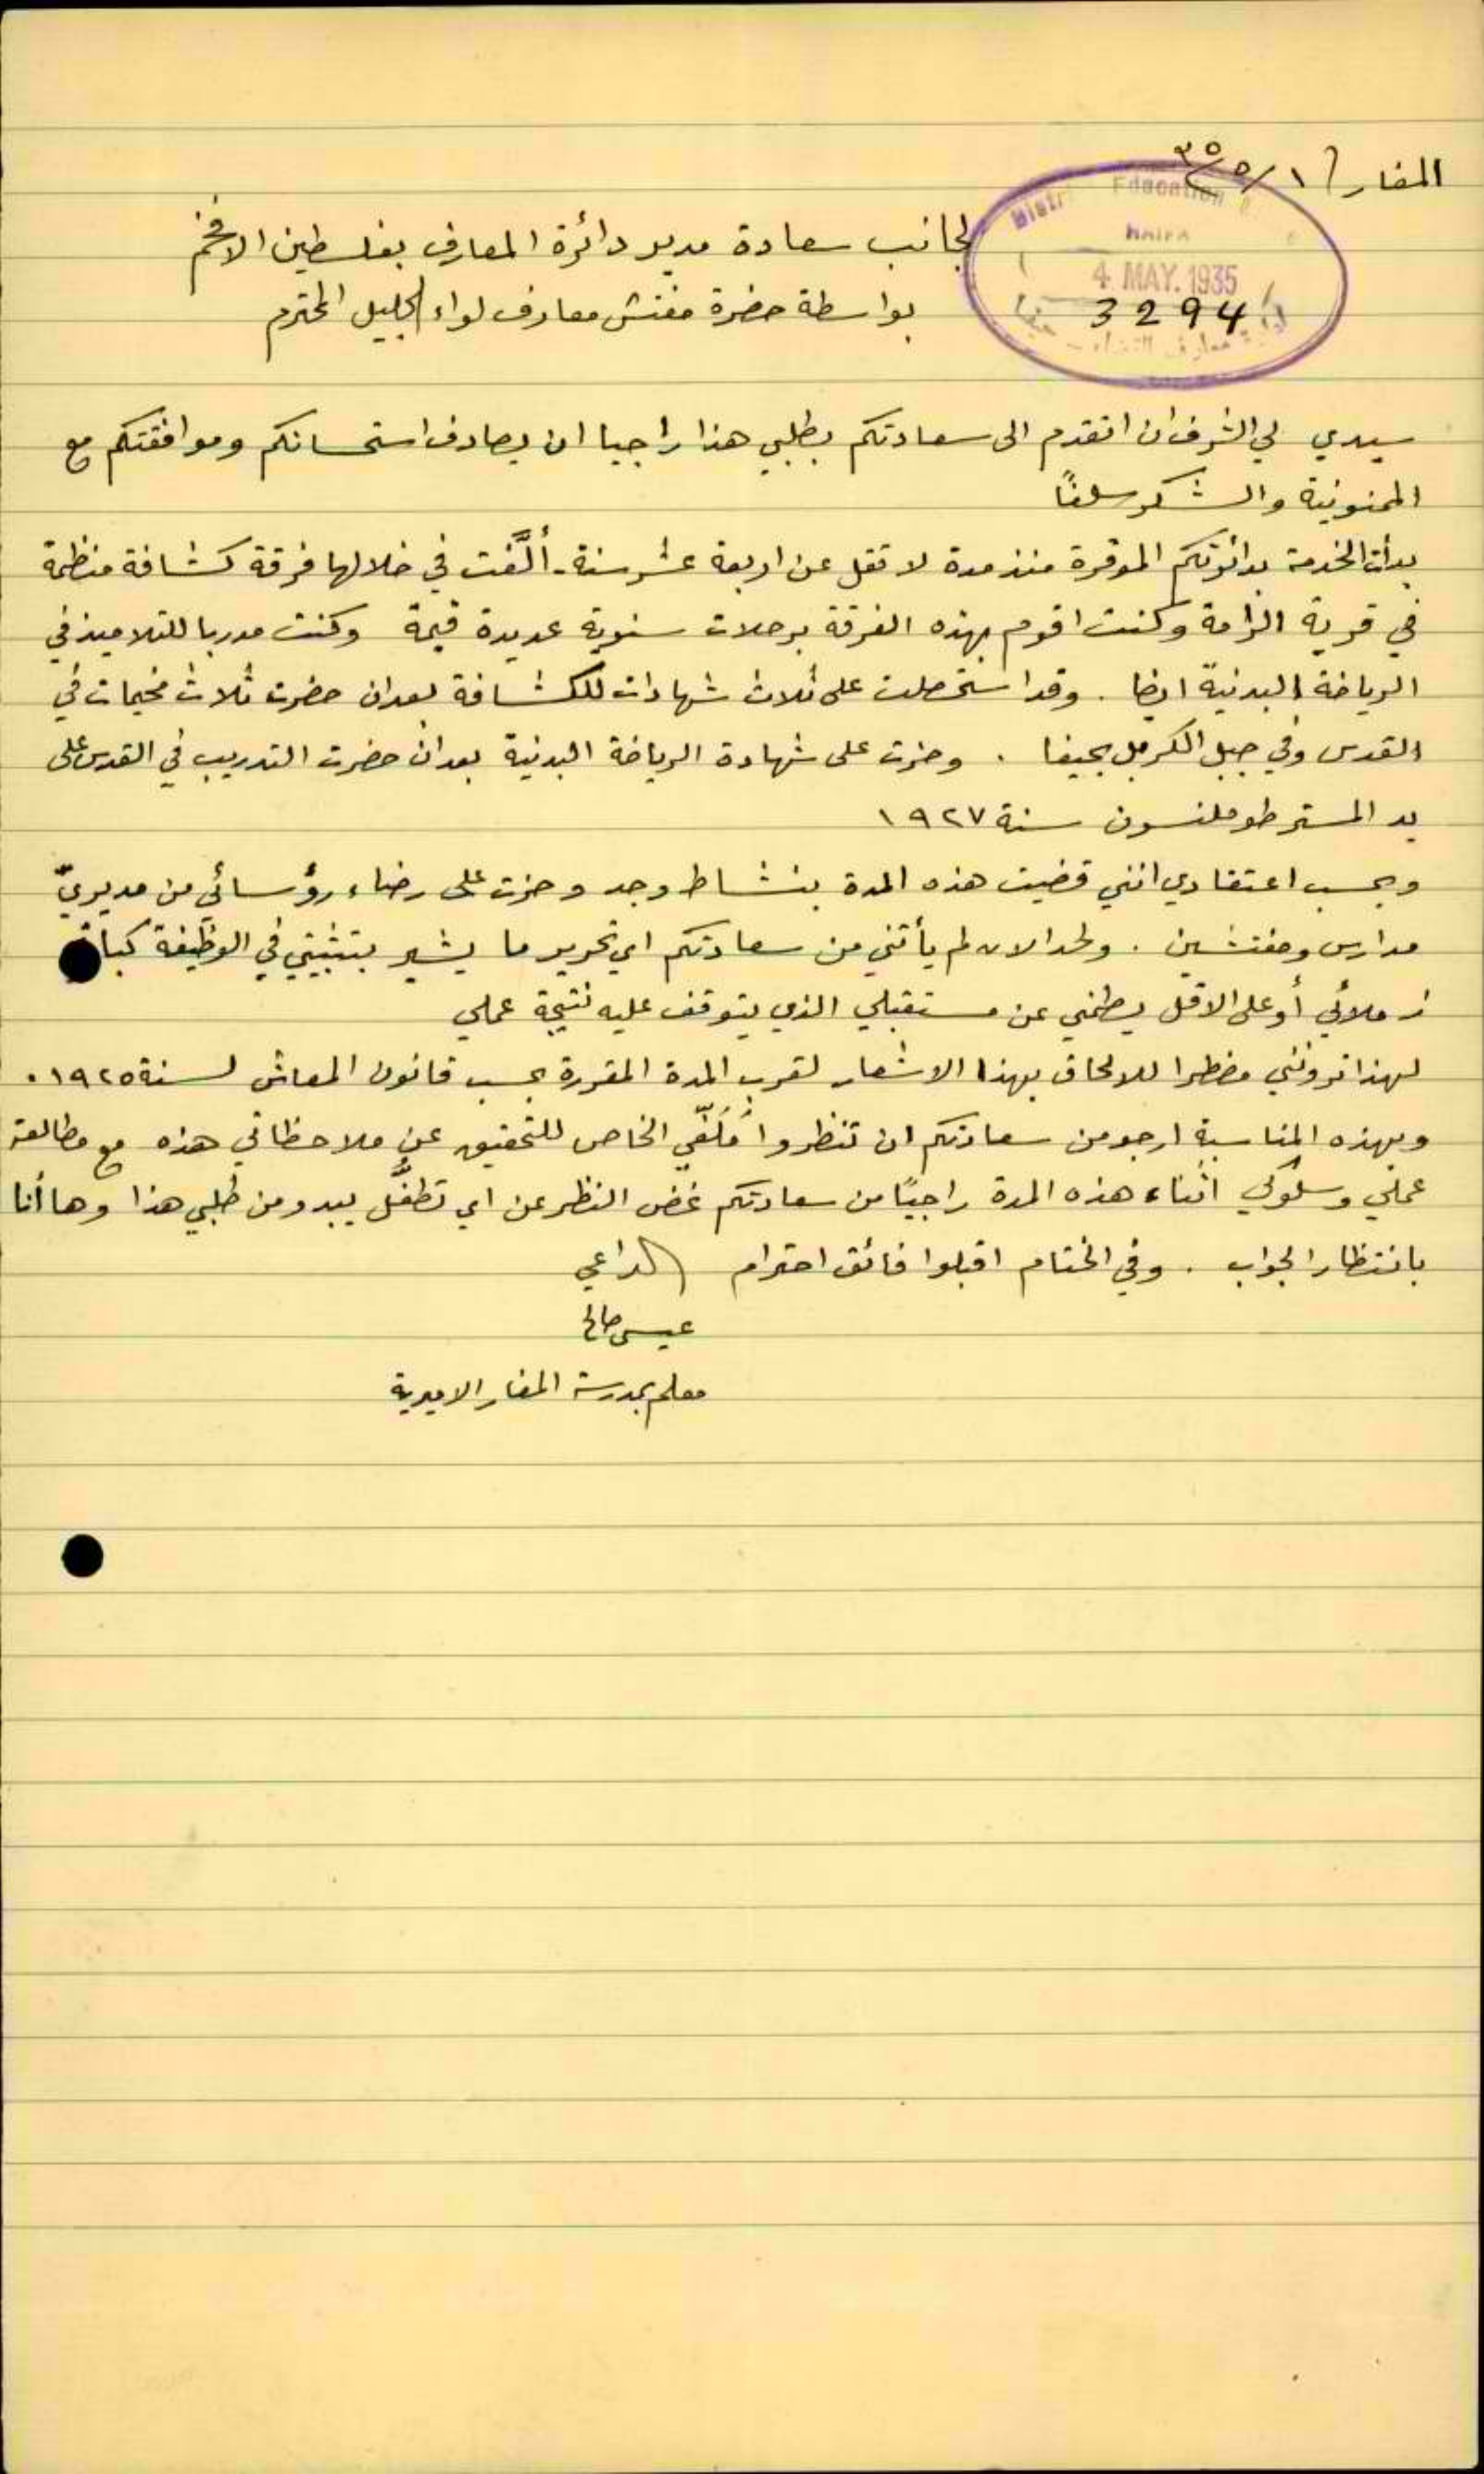 المغار ١/٥/٣٥
District Education
HAIFA
4 MAY. 1935
3294
معارف حيفا
لجانب سعادة مدير دائرة المعارف بفلسطين الافخم
بواسطة حضرة مفتش معارف لواء الجليل المحترم
سيدي لي الشرف ان اتقدم الى سعادتكم بطلبي هذا راجيا ان يصادف استحسانكم وموافقتكم مع
الممنونية والشكر سلفًا
بدأت الخدمة بدائرتكم الموقرة منذ مدة لا تقل عن اربعة عشر سنة - ألَّفت في خلالها فرقة كشافة منظمة
في قرية الرامة وكنت اقوم بهذه الفرقة برحلات سنوية عديدة قيمة وكنت مدربا للتلاميذ في
الرياضة البدنية ايضا . وقد استحصلت على ثلاث شهادات للكشافة بعد ان حضرت ثلاث مخيمات في
القدس وفي جبل الكرمل بحيفا . وحزت على شهادة الرياضة البدنية بعد ان حضرت التدريب في القدس على
يد المستر طوملنسون سنة ١٩٢٧
وبحسب اعتقادي انني قضيت هذه المدة بنشاط وجد وحزت على رضاء رؤسائي من مديريّ
مدارس ومفتشين . ولحد الان لم يأتني من سعادتكم اي تحرير ما يشير بتثبيتي في الوظيفة كباقي
زملائي أو على الاقل يطمني عن مستقبلي الذي يتوقف عليه نتيجة عملي
لهذا ترونني مضطرا للالحاق بهذا الاشعار لقرب المدة المقررة بحسب قانون المعاش لسنة ١٩٢٥ .
وبهذه المناسبة ارجو من سعادتكم ان تنظروا مُلَفّي الخاص للتحقيق عن ملاحظاتي هذه مع مطالعة
عملي وسلوكي اثناء هذه المدة راجيًا من سعادتكم غض النظر عن اي تطفُّل يبدو من طلبي هذا وها أنا
بانتظار الجواب . وفي الختام اقبلوا فائق احترام الداعي
عيسى صالح
معلم بمدرسة المغار الاميرية